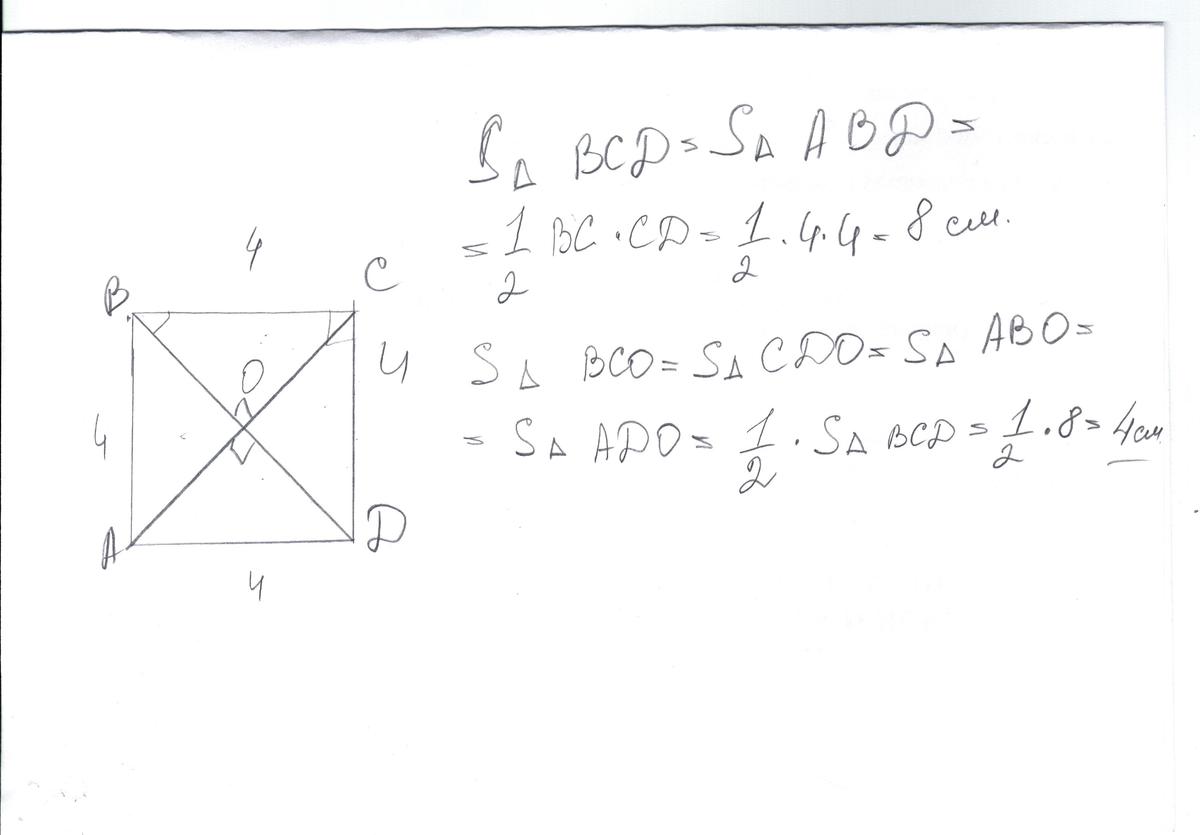 S△ BCD = S△ ABD =
= 1/2 BC · CD = 1/2 · 4 · 4 = 8 см.
S△ BCO = S△ CDO = S△ ABO =
= S△ ADO = 1/2 · S△ BCD = 1/2 · 8 = 4см
4
B
C
O
4
4
A
D
4